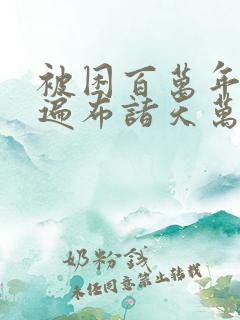 被困百萬年
遍布諸天萬
奶粉錢
未經同意禁止轉載